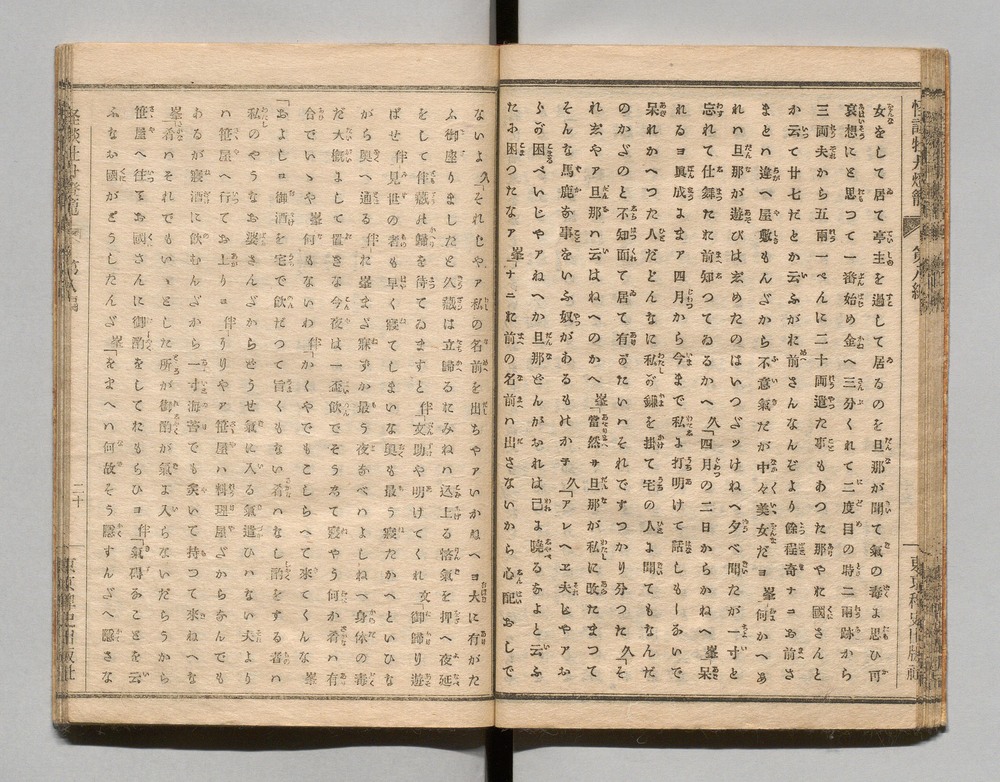 女をして居て亭主を過して居るのを旦那が聞て氣の毒に思ひ可
哀想にと思つて一番始め金へ三分くれて二度目の時二兩跡から
三兩夫から五兩一ぺんに二十兩遣た事もあつた那やれ國さんと
か云て廿七だとか云ふがお前さんなんぞより餘程奇ナニお前さ
まとハ違へ屋敷もんだから不意氣だが中々美女だヨ 峯何かへあ
れハ旦那が遊びは玄めたのはいつだッけねへ夕べ聞たが一寸と
忘れて仕舞たお前知つてゐるかへ 久「四月の二日からかねへ 峯呆
れるヨ眞成よまア四月から今まで私に打明けて話しもしないで
呆れかへつた人だどんなに私が鎌を掛て宅の人に聞てもなんだ
のかだのと不知面して居て有がたいハそれですつかり分つた 久「そ
れ玄やア旦那ハ云はねへのかへ 峯「當然サ旦那が私に改たまつて
そんな馬鹿な事をいふ奴があるものかナ 久「アレヘエ夫じやアお
らが困べいじやアねへか旦那どんがおれは己に曉るなよと云ふ
たお困つたなア 峯「ナニお前の名前ハ出さないから心配おしで
ないよ 久「それじやア私の名前を出ちやアいかねへヨ大に有がた
ふ御座りましたと久藏は立歸るにみねハ込上る悋氣を押へ夜延
をして伴藏の歸を待てゐますと 伴「文助や明けてくれ 文御歸り遊
ばせ 伴見世の者も早く寢てしまいな奥も最う寢たかへといひな
がら奥へ通る 伴お峯まだ寐ずか最う夜なべハよしねへ身体の毒
だ大概よして置な今夜は一盃飲でそうして寢やう何か肴ハ有
合でいゝや 峯何もないわ 伴「かくやでもこしらへて來てくんな 峯
「およしヨ御酒を宅で飲だつて旨くもない肴ハなし酌をする者ハ
私のやうなお婆さんだからどうせ氣に入る氣遣ひハない夫より
ハ笹屋へ行てお上りヨ 伴「そりやア笹屋ハ料理屋だからなんでも
あるが寢酒に飲むんだから一寸海苔でも燒いて持つて來ねへな
峯「肴ハそれでもいゝとした所が御酌が氣に入らないだらうから
笹屋へ往てお國さんに御酌をしてお貰ヒヨ 伴「氣障なことを云
ふなお國がどうしたんだ 峯「をまへハ何故そう隱すんだへ隱さな
怪談牡丹燈籠
第八編
二十
東京稗史出版社